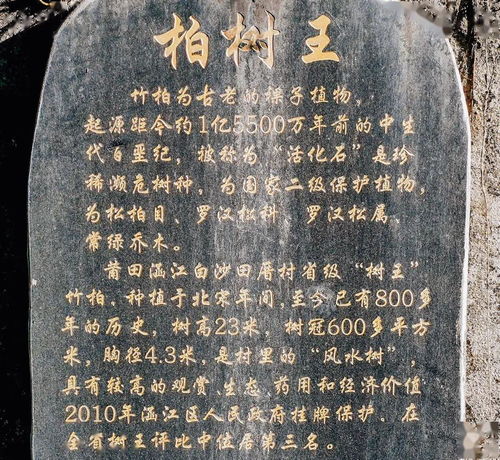 柏树王
竹柏为古老的裸子植物，
起源距今约1亿5500万年前的中生
代白垩纪，被称为“活化石”是珍
稀濒危树种，为国家二级保护植物，
为松柏目、罗汉松科、罗汉松属、
常绿乔木。
莆田涵江白沙田厝村省级“树王”
竹柏，种植于北宋年间，至今已有800多
年的历史，树高23米，树冠600多平方
米，胸径4.3米，是村里的“风水树”，
具有较高的观赏、生态、药用和经济价值
2010年涵江区人民政府挂牌保护。在
全省树王评比中位居第三名。